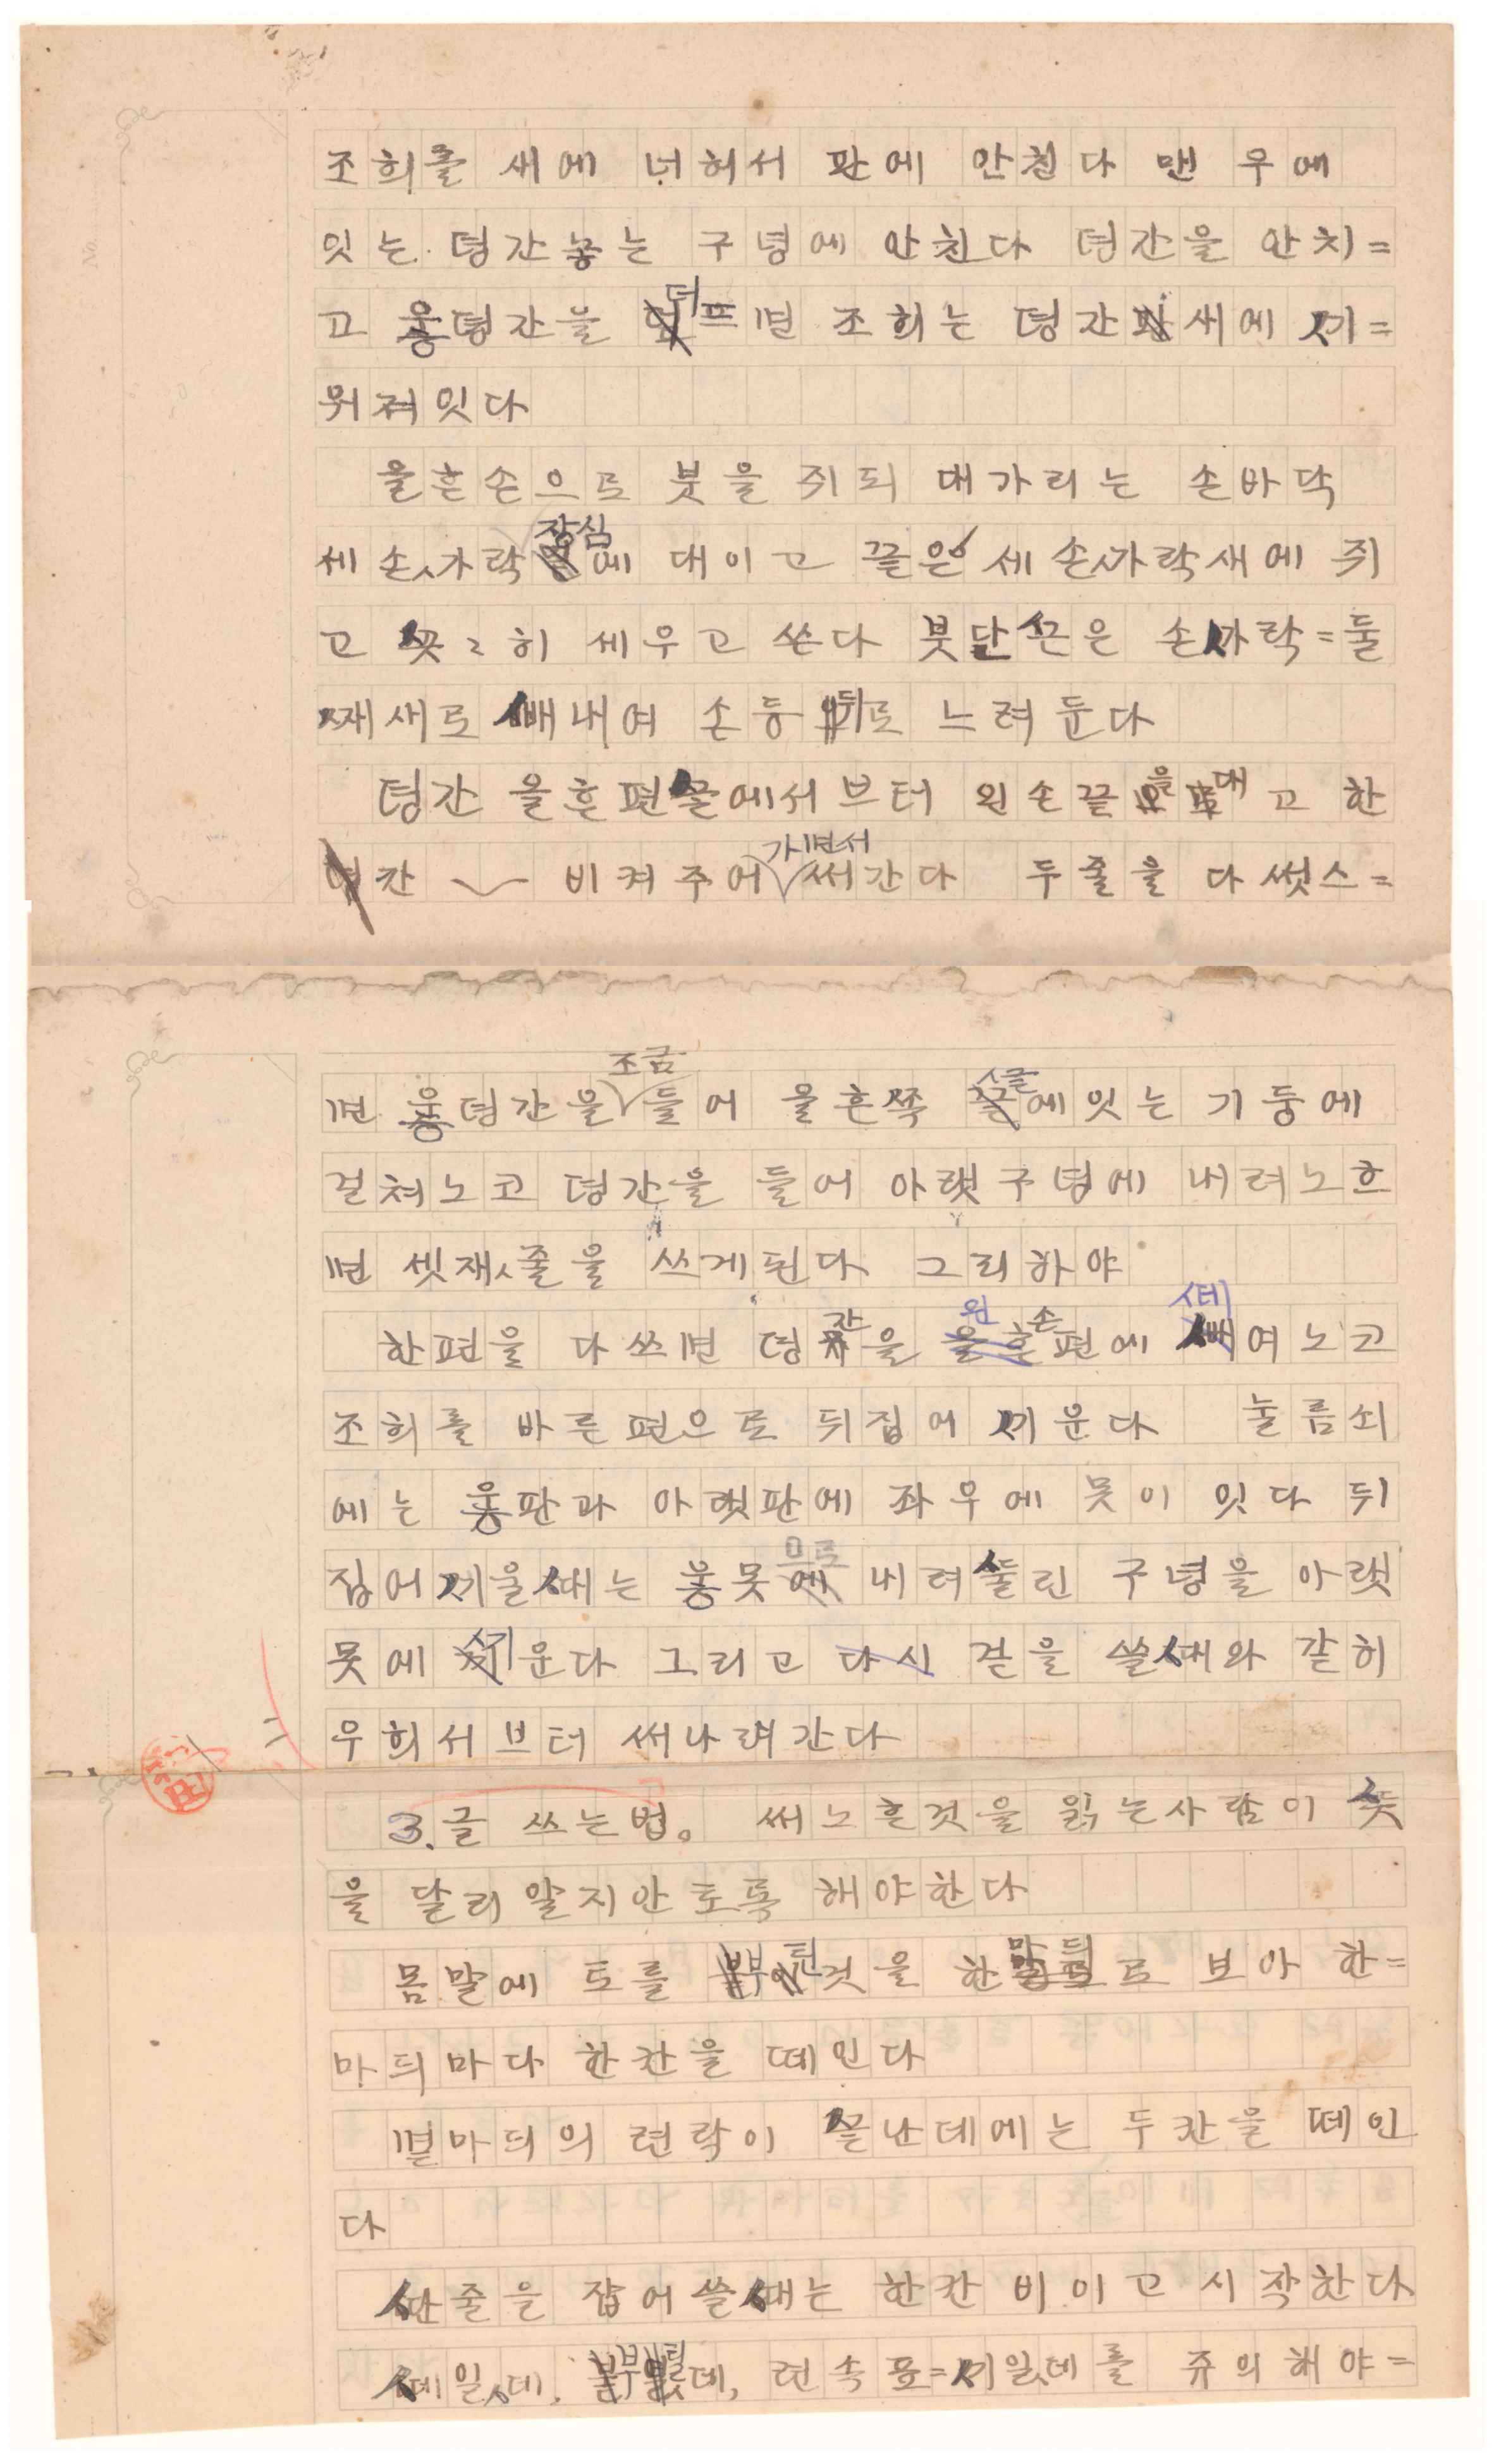 조희를 새에 너허서 판에 안친다 맨 우에
잇는 뎡간놓는 구녕에 안친다 뎡간을 안치=
고 웋뎡간을 더프면 조희는 뎡간새에 ᄭᅵ=
워져잇다
올흔손으로 붓을 쥐되 대가리는 손바닥
세손ᄭᅡ락 장심에 대이고 끝은 세손ᄭᅡ락새에 쥐
고 ᄭᅩᆺᄭᅩᆺ히 세우고 쓴다 붓단ᄭᅳᆫ은 손ᄭᅡ락=둘
ᄶᅢ새로 ᄲᅢ내여 손등 뒤로 느려둔다
뎡간 올흔편ᄭᅳᆯ에서브터 왼손끝을 대고 한
칸 비켜주어가면서 써간다 두줄을 다썻스=
면 웋뎡간을 조금 들어 올흔쪽 ᄭᅳᆯ에잇는 기둥에
걸쳐노코 뎡간을 들어 아랫구녕에 내려노흐
면 셋재ᄶᅮᆯ을 쓰게된다 그리하야
한편을 다쓰면 뎡간을 왼손편에 ᄯᅦ여노코
조희를 바른편으로 뒤집어 ᄭᅵ운다 눌름쇠
에는 웋판과 아랫판에 좌우에 못이 잇다 뒤
집어ᄭᅵ울ᄯᅢ는 웋못으로 내려ᄯᅮᆯ린 구녕을 아랫
못에 ᄭᅵ운다 그리고 겉을 쓸ᄯᅢ와 같히
우희서브터 써나려간다
3. 글 쓰는법。 써노흔것을 읽는사람이 ᄯᅳᆺ
을 달리알지안토록 해야한다
몸말에 토를 부틴것을 한말듸로 보아 한=
마듸마다 한칸을 떼인다
멷마듸의 련락이 ᄭᅳᆯ난데에는 두칸을 떼인
다
ᄯᅡᆫ줄을 잡어쓸ᄯᅢ는 한칸 비이고 시작한다
ᄯᅦ일ᄯᅦ, 부틸ᄯᅦ, 련속표=ᄭᅵ일ᄯᅦ를 쥬의해야=